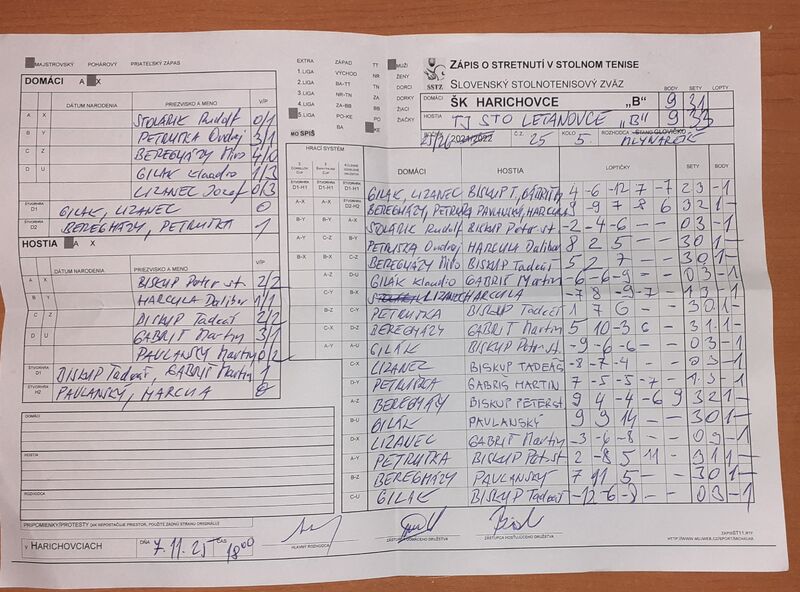 MAJSTROVSKÝ POHÁROVÝ PRIATEĽSKÝ ZÁPAS
DOMÁCI A X
DÁTUM NARODENIA PRIEZVISKO A MENO V/P
A X STOLÁRIK Rudolf 0/1
B Y PETRUŠKA Ondrej 3/1
C Z BEREGHÁZY Miro 4/0
GILÁK Klaudio 1/3
LIZANEC Jozef 0/3
ŠTVORHRA D1 GILAK, LIZANEC 0
ŠTVORHRA D2 BEREGHÁZY, PETRUŠKA 1
HOSTIA A X
DÁTUM NARODENIA PRIEZVISKO A MENO V/P
A X BISKUP Peter st 2/2
B Y HARCULA Dalibor 1/1
C Z BISKUP Tadeáš 2/2
D U GABRIŠ Martin 3/1
PAVLANSKÝ Martin 0/2
ŠTVORHRA D1 BISKUP Tadeáš, GABRIŠ Martin 1
ŠTVORHRA H2 PAVLANSKÝ, HARCULA 0
DOMÁCI
HOSTIA
ROZHODCA
PRIPOMIENKY/PROTESTY (AK NEPOSTAČUJE PRIESTOR, POUŽITE ZADNÚ STRANU ORIGINÁLU)
V HARICHOVCIACH DŇA 7.11.25 ČAS 18:00
HLAVNÝ ROZHODCA
ZÁSTUPCA DOMÁCEHO DRUŽSTVA
ZÁSTUPCA HOSŤUJÚCEHO DRUŽSTVA
EXTRA ZÁPAD TT MUŽI
1.LIGA VÝCHOD NR ŽENY
2.LIGA BA-TT TN DORCI
3.LIGA NR-TN ZA DORKY
4.LIGA ZA-BB BB ŽIACI
5.LIGA PO-KE PO
BA KE
MO SPIŠ
SSTZ
ZÁPIS O STRETNUTÍ V STOLNOM TENISE
SLOVENSKÝ STOLNOTENISOVÝ ZVÄZ
BODY SETY LOPTY
DOMÁCI ŠK HARICHOVCE „B" 9 31
HOSTIA TJ STO LETANOVCE „B" 9 33
25/26 2021/2022 Č.Z. 25 KOLO 5. ROZHODCA MLYNARČÍK
HRACÍ SYSTÉM
DOMÁCI HOSTIA LOPTIČKY SETY BODY
D1-H1 GILAK, LIZANEC BISKUP T, GABRIŠ M 4 -6 -12 7 -7 2 3 -1
D2-H2 BEREGHÁZY, PETRUŠKA PAVLANSKÝ, HARCULA 9 -9 7 -8 6 3 2 1-
A-X STOLÁRIK Rudolf BISKUP Peter st -2 -4 -6 - - 0 3 -1
B-Y PETRUŠKA Ondrej HARCULA Dalibor 8 2 5 - - 3 0 1-
C-Z BEREGHÁZY Miro BISKUP Tadeáš 5 2 7 - - 3 0 1-
D-U GILÁK Klaudio GABRIŠ Martin -6 -6 -9 - - 0 3 -1
LIZANEC HARCULA -7 8 -9 -7 - 1 3 -1
C-Y PETRUŠKA BISKUP Tadeáš 1 7 6 - - 3 0 1-
D-Z BEREGHÁZY GABRIŠ Martin 5 10 -3 6 - 3 1 1-
A-U GILÁK BISKUP Peter st -9 -6 -6 - - 0 3 -1
C-X LIZANEC BISKUP TADEÁŠ -8 -7 -4 - - 0 3 -1
D-Y PETRUŠKA GABRIS MARTIN 7 -5 -5 -7 - 1 3 -1
A-Z BEREGHÁZY BISKUP PETER ST 9 4 -4 -6 9 3 2 1-
B-U GILÁK PAVLANSKÝ 9 9 14 - - 3 0 1-
D-X LIZANEC GABRIŠ Martin -3 -6 -8 - - 0 3 -1
A-Y PETRUŠKA BISKUP Peter st 2 -8 5 11 - 3 1 1-
B-Z BEREGHÁZY PAVLANSKÝ 7 11 5 - - 3 0 1-
C-U GILAK BISKUP Tadeáš -12 -6 -8 - - 0 3 -1